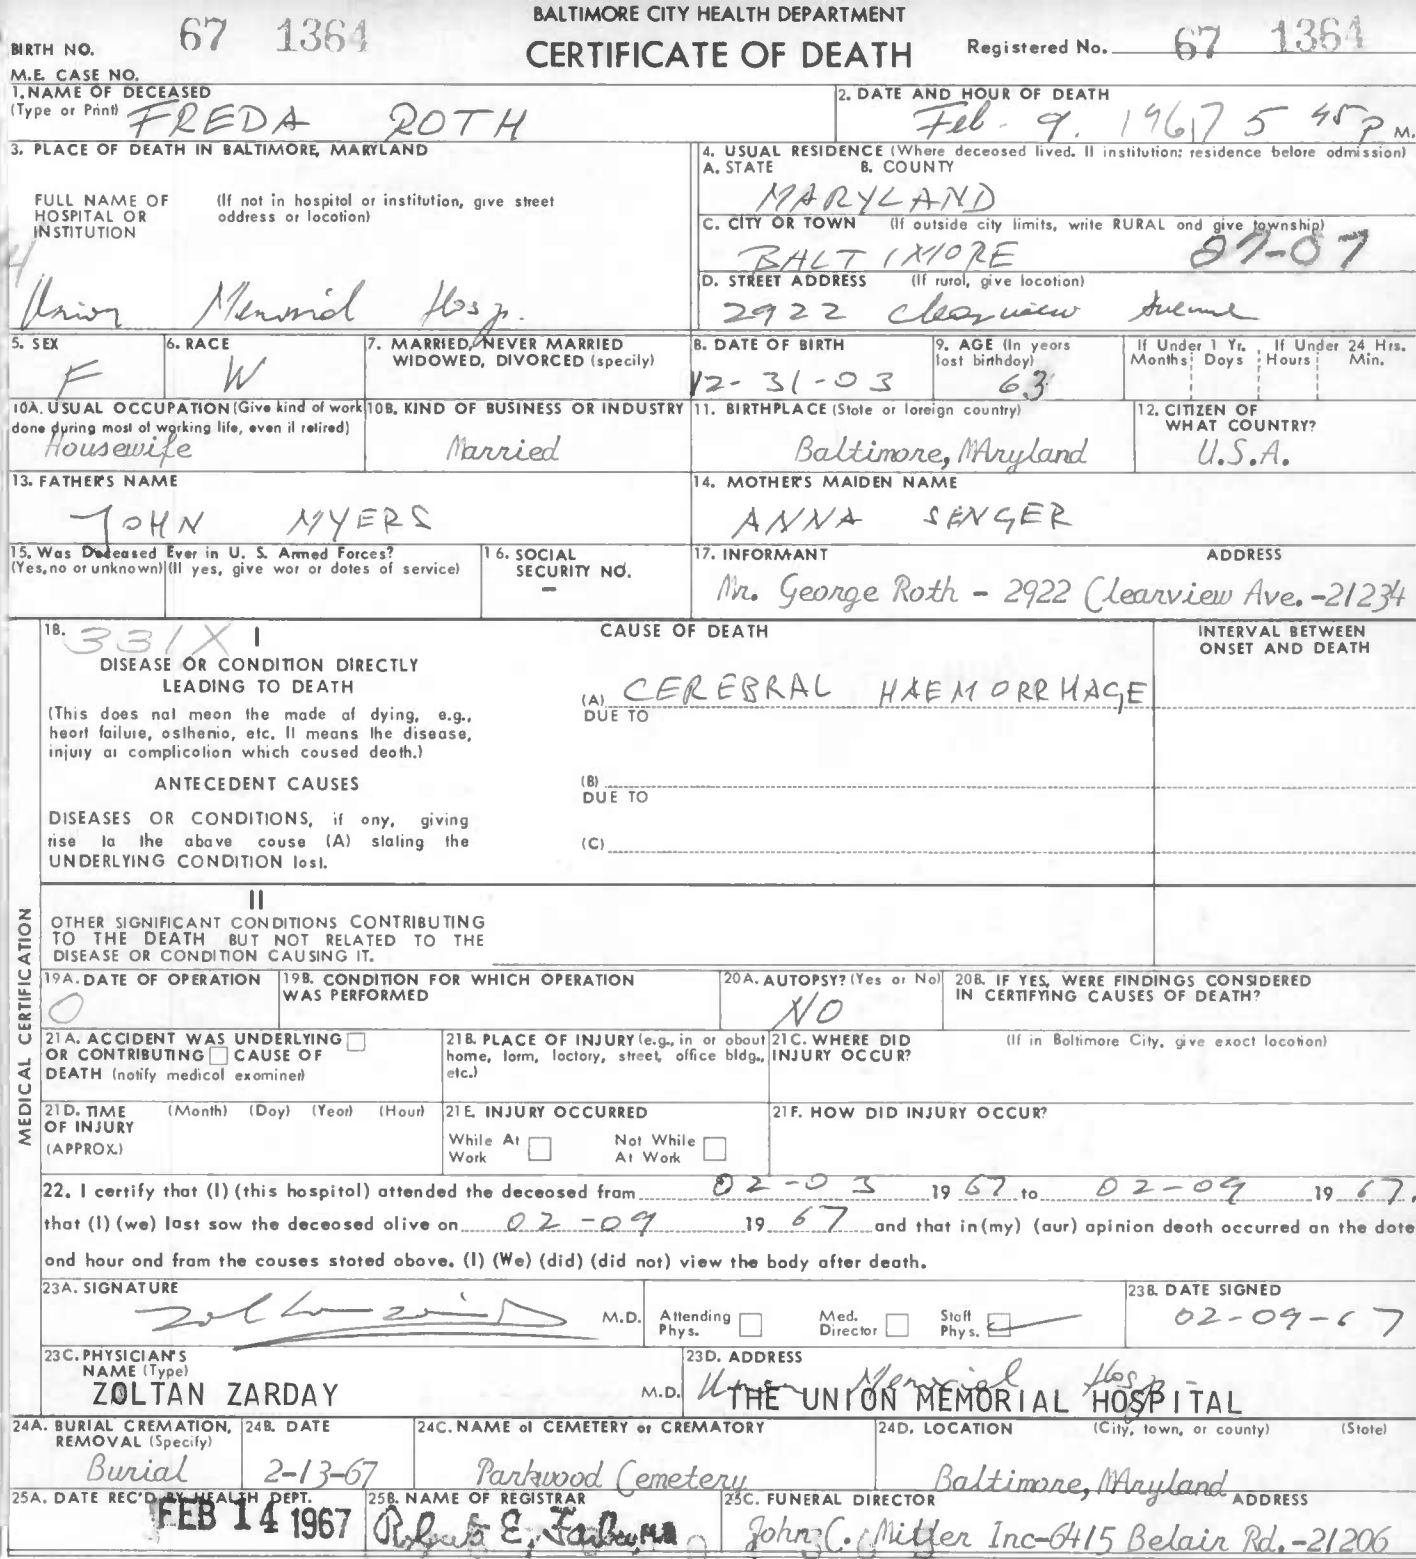 BALTIMORE CITY HEALTH DEPARTMENT
BIRTH NO. 67 1364 CERTIFICATE OF DEATH Registered No. 67 1364
M.E. CASE NO.
1. NAME OF DECEASED
(Type or Print) FREDA ROTH
2. DATE AND HOUR OF DEATH
Feb. 9. 1967 5 45 P M.
3. PLACE OF DEATH IN BALTIMORE, MARYLAND
FULL NAME OF HOSPITAL OR INSTITUTION
(If not in hospital or institution, give street address or location)
4
Union Memorial Hosp.
4. USUAL RESIDENCE (Where deceased lived. If institution: residence before admission)
A. STATE B. COUNTY
MARYLAND
C. CITY OR TOWN (If outside city limits, write RURAL and give township)
BALTIMORE 27-07
D. STREET ADDRESS (If rural, give location)
2922 Clearview Avenue
5. SEX
F
6. RACE
W
7. MARRIED, NEVER MARRIED
WIDOWED, DIVORCED (specify)
8. DATE OF BIRTH
12-31-03
9. AGE (In years
last birthday)
63
If Under 1 Yr. If Under 24 Hrs.
Months Days Hours Min.
10A. USUAL OCCUPATION (Give kind of work
done during most of working life, even if retired)
Housewife
10B. KIND OF BUSINESS OR INDUSTRY
Married
11. BIRTHPLACE (State or foreign country)
Baltimore, MAryland
12. CITIZEN OF
WHAT COUNTRY?
U.S.A.
13. FATHER'S NAME
JOHN MYERS
14. MOTHER'S MAIDEN NAME
ANNA SENGER
15. Was Deceased Ever in U. S. Armed Forces?
(Yes, no or unknown) (If yes, give war or dates of service)
16. SOCIAL
SECURITY NO.
-
17. INFORMANT ADDRESS
Mr. George Roth - 2922 Clearview Ave. -21234
MEDICAL CERTIFICATION
18. 331X I
DISEASE OR CONDITION DIRECTLY
LEADING TO DEATH
(This does not mean the mode of dying, e.g.,
heart failure, asthenia, etc. It means the disease,
injury or complication which caused death.)
ANTECEDENT CAUSES
DISEASES OR CONDITIONS, if any, giving
rise to the above cause (A) stating the
UNDERLYING CONDITION last.
CAUSE OF DEATH
(A) CEREBRAL HAEMORRHAGE
DUE TO
(B)
DUE TO
(C)
INTERVAL BETWEEN
ONSET AND DEATH
II
OTHER SIGNIFICANT CONDITIONS CONTRIBUTING
TO THE DEATH BUT NOT RELATED TO THE
DISEASE OR CONDITION CAUSING IT.
19A. DATE OF OPERATION
0
19B. CONDITION FOR WHICH OPERATION
WAS PERFORMED
20A. AUTOPSY? (Yes or No)
NO
20B. IF YES, WERE FINDINGS CONSIDERED
IN CERTIFYING CAUSES OF DEATH?
21A. ACCIDENT WAS UNDERLYING
OR CONTRIBUTING CAUSE OF
DEATH (notify medical examiner)
21B. PLACE OF INJURY (e.g., in or about
home, farm, factory, street, office bldg.,
etc.)
21C. WHERE DID
INJURY OCCUR?
(If in Baltimore City, give exact location)
21D. TIME (Month) (Day) (Year) (Hour)
OF INJURY
(APPROX.)
21E. INJURY OCCURRED
While At Work
Not While At Work
21F. HOW DID INJURY OCCUR?
22. I certify that (I) (this hospital) attended the deceased from 02-03 1967 to 02-09 1967,
that (I) (we) last saw the deceased alive on 02-09 1967 and that in (my) (our) opinion death occurred on the date
and hour and from the causes stated above. (I) (We) (did) (did not) view the body after death.
23A. SIGNATURE
M.D.
Attending Phys.
Med. Director
Staff Phys.
23B. DATE SIGNED
02-09-67
23C. PHYSICIAN'S
NAME (Type)
ZOLTAN ZARDAY M.D.
23D. ADDRESS
Union Memorial Hosp.
THE UNION MEMORIAL HOSPITAL
24A. BURIAL CREMATION,
REMOVAL (Specify)
Burial
24B. DATE
2-13-67
24C. NAME of CEMETERY or CREMATORY
Parkwood Cemetery
24D. LOCATION (City, town, or county) (State)
Baltimore, MAryland
25A. DATE REC'D BY HEALTH DEPT.
FEB 14 1967
25B. NAME OF REGISTRAR
Robert E. Farber, MD
25C. FUNERAL DIRECTOR ADDRESS
John C. Miller Inc-6415 Belair Rd. -21206